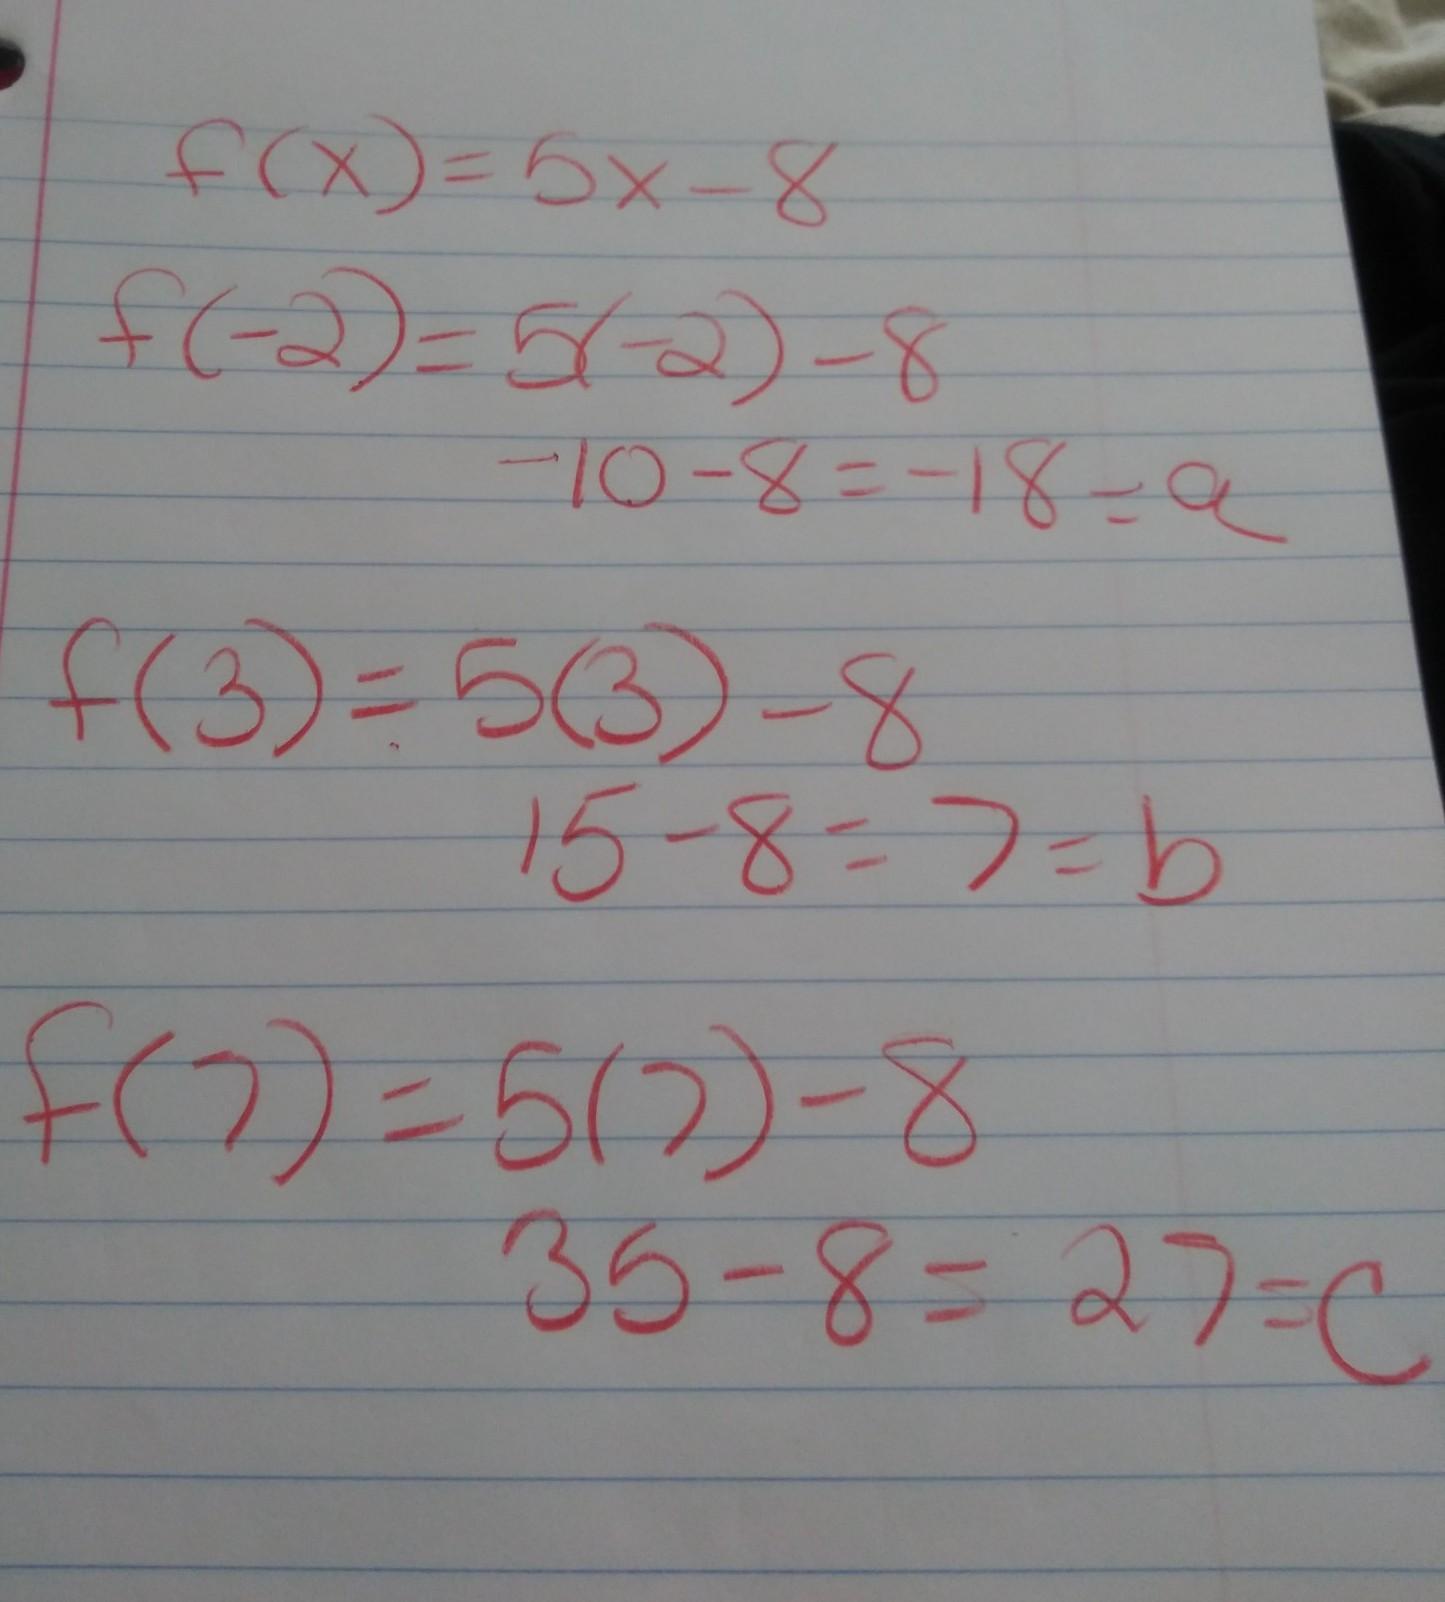 f(x) = 5x - 8
f(-2) = 5(-2) - 8
-10 - 8 = -18 = a
f(3) = 5(3) - 8
15 - 8 = 7 = b
f(7) = 5(7) - 8
35 - 8 = 27 = c